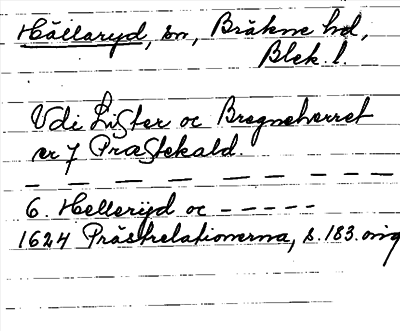 Hällaryd, sn, Bräkne hd,
Blek. l.
Vdi Lister oc Bregneherret
er 7 Præstekald.
— — — — — — — — —
6. Hellerijd oc – – – – –
1624 Prästrelationerna, s. 183. orig